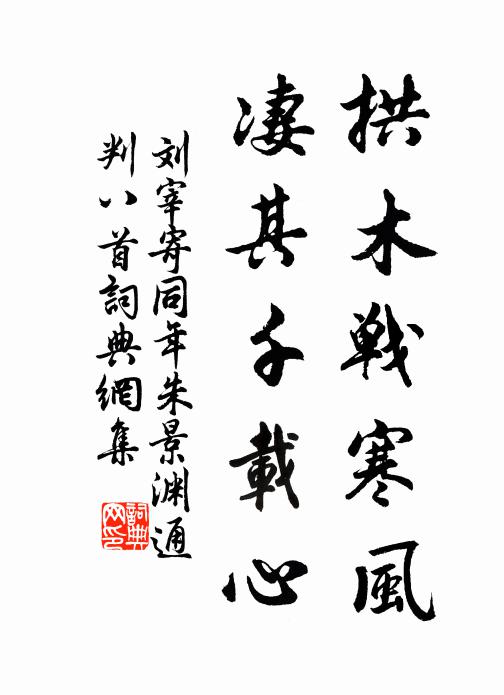 拱木戰寒風
淒其千載心
刘宰寄同年朱景渊通
判八首詞典網集
詞典
网印